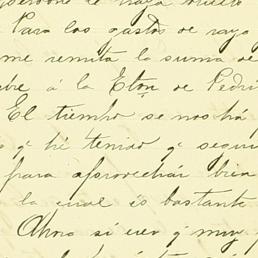 Para los gastos de rayo
me remita la suma de
bre á la Eton de Pedri
El tiempo se nos há
q' hé tenido q' segui
para aprovechar bien
la cual és bastante
Ahora si creo q' muy